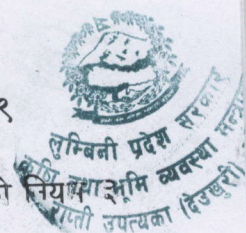 १
लुम्बिनी प्रदेश सरकार
कृषि तथा भूमि व्यवस्था मन्
राप्ती उपत्यका (देउखुरी)
नियम ३